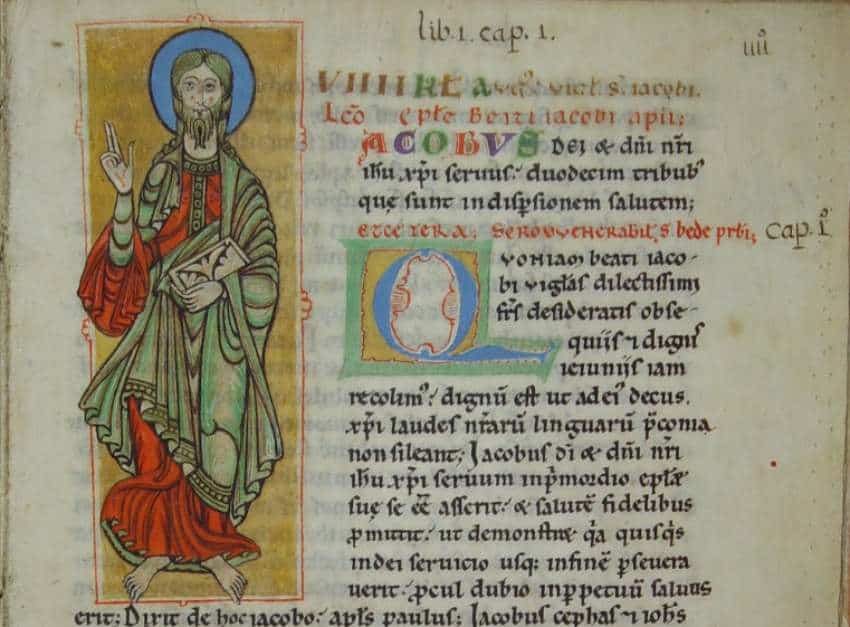 lib. 1. cap. 1.
iiii̊
VIIII KL Augᵒ vigl. s. iacobi.
Lc̄o eplē Beati iacobi apli;
JACOBUS Dei & dn̄i nr̄i
ihu xp̄i seruus. duodecim tribubꝰ
quę sunt indispersionem salutem;
ET CETERA; SERO VENERABIL̃ S. bede prb̄i;
cap. I̊
QVONIAM beati iaco-
bi vigl̃as dilectissimi
fr̄s desideratis obse-
quiis ⁊ dignis
ieiuniis iam
recolimꝰ. dignū est ut adeiꝰ decus.
xp̄i laudes nr̄arū linguarū p̄conia
non sileant; Jacobus dı̄ & dn̄i nr̄i
ihu xp̄i seruum inp̄mordio eplæ
suę se eē asserit. & salutē fidelibus
ꝓmittit. ut demonstret q̄a quisq̄s
indei seruicio usq; infinē ꝑseuera
uerit. ꝓcul dubio inꝑpetuū saluus
erit; Dixit de hoc iacobo. apl̄s paulus; Jacobus cephas ⁊ ioh̄s